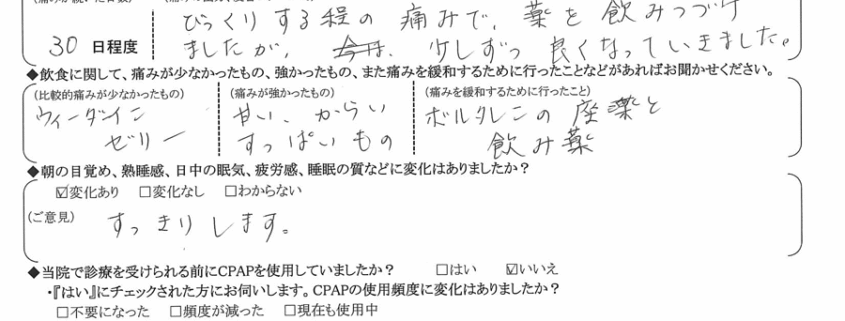 びっくりする程の痛みで、薬を飲みつづけ
30 日程度 ましたが、少しずつ良くなっていきました。
◆飲食に関して、痛みが少なかったもの、強かったもの、また痛みを緩和するために行ったことなどがあればお聞かせください。
(比較的痛みが少なかったもの) (痛みが強かったもの) (痛みを緩和するために行ったこと)
ウィーダインゼリー 甘い、からい ボルタレンの座薬と
すっぱいもの 飲み薬
◆朝の目覚め、熟睡感、日中の眠気、疲労感、睡眠の質などに変化はありましたか?
☑変化あり □変化なし □わからない
(ご意見) すっきりします。
◆当院で診療を受けられる前にCPAPを使用していましたか? □はい ☑いいえ
・『はい』にチェックされた方にお伺いします。CPAPの使用頻度に変化はありましたか?
□不要になった □頻度が減った □現在も使用中